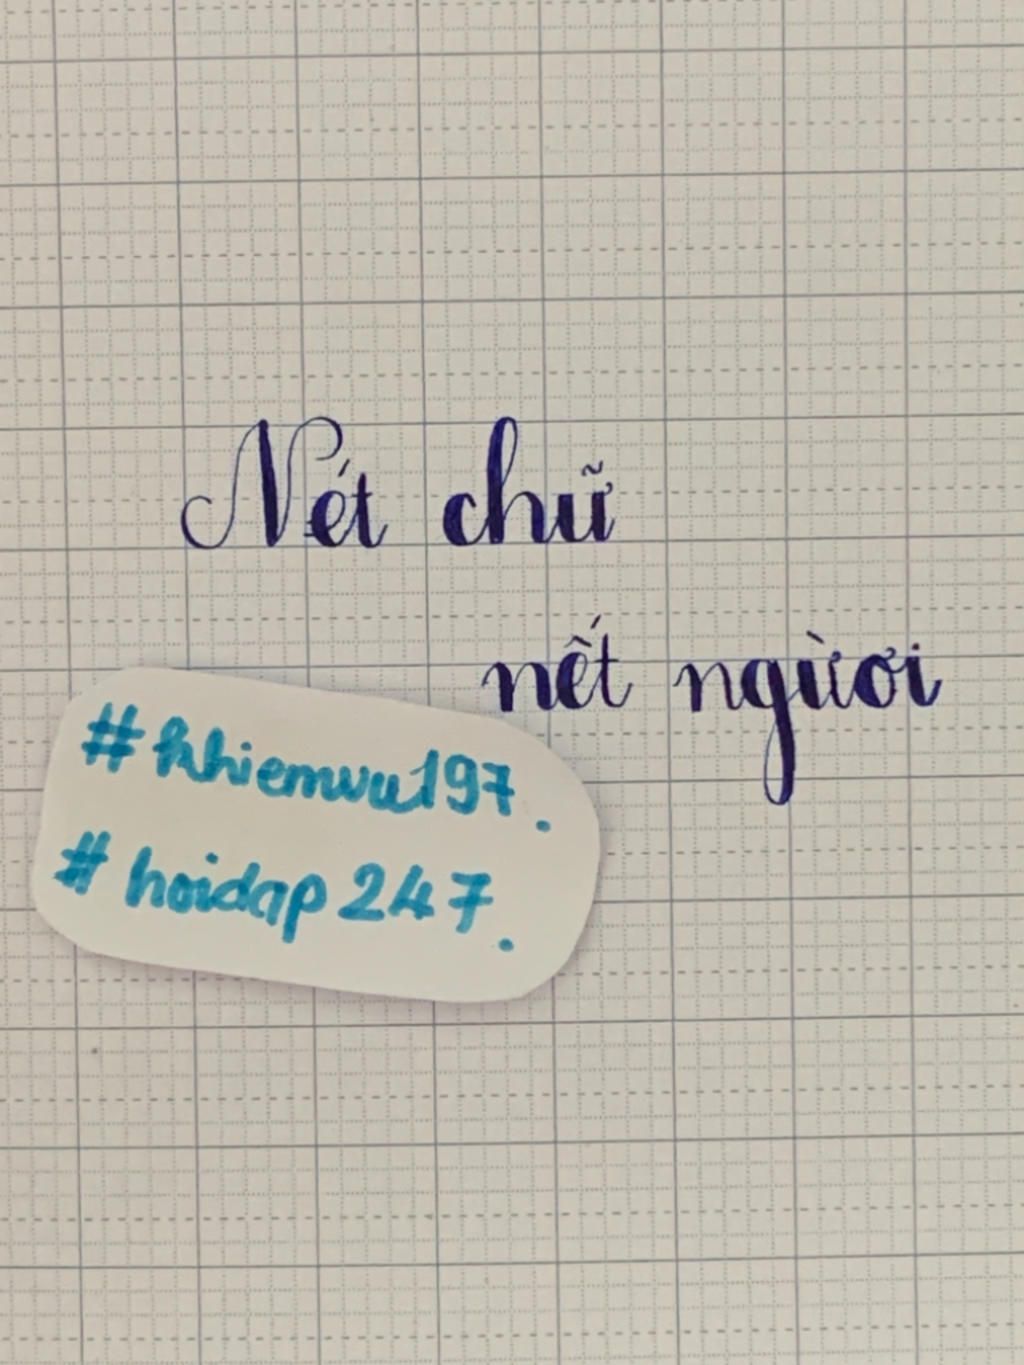 Nét chữ
nết người
#khiemvu197.
#hoidap247.